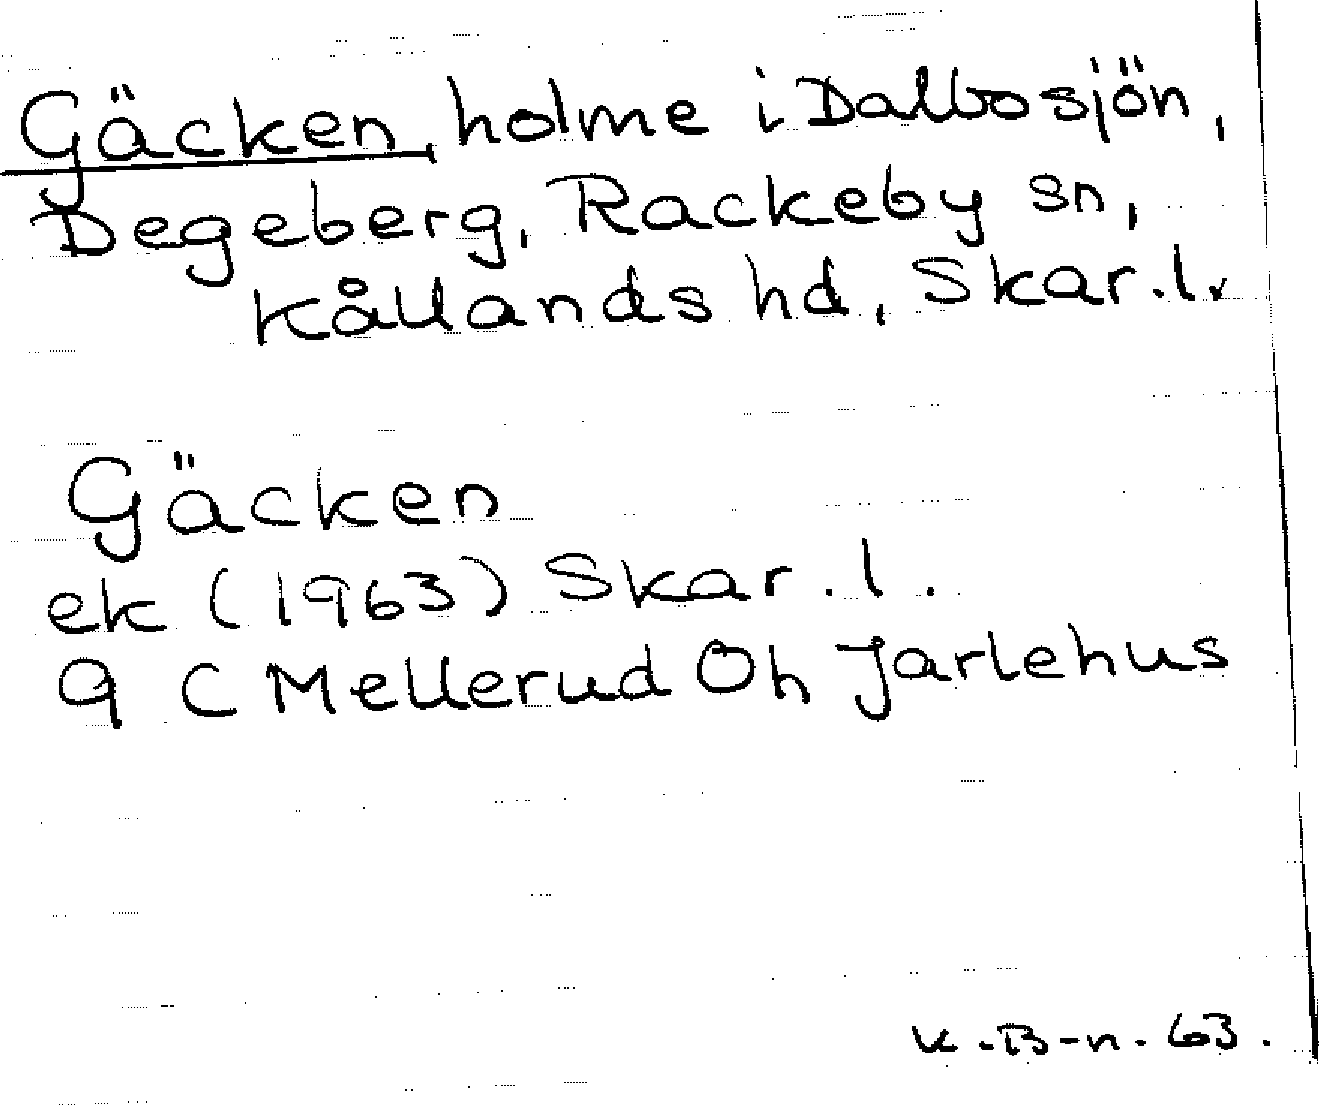 Gäcken, holme i Dalbosjön,
Degeberg, Rackeby sn,
Kållands hd, Skar. l.
Gäcken
ek (1963) Skar. l.
9 C Mellerud Öh Jarlehus
K.B-n. 63.